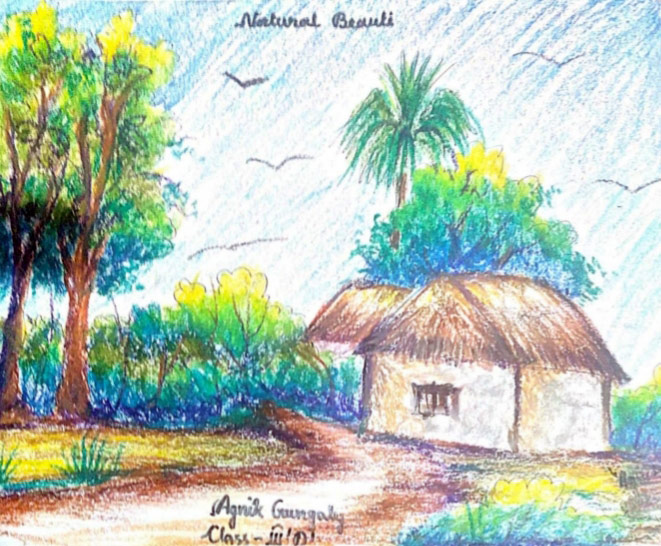 Natural Beauti
Agnik Gungaly
Class - III 'D'